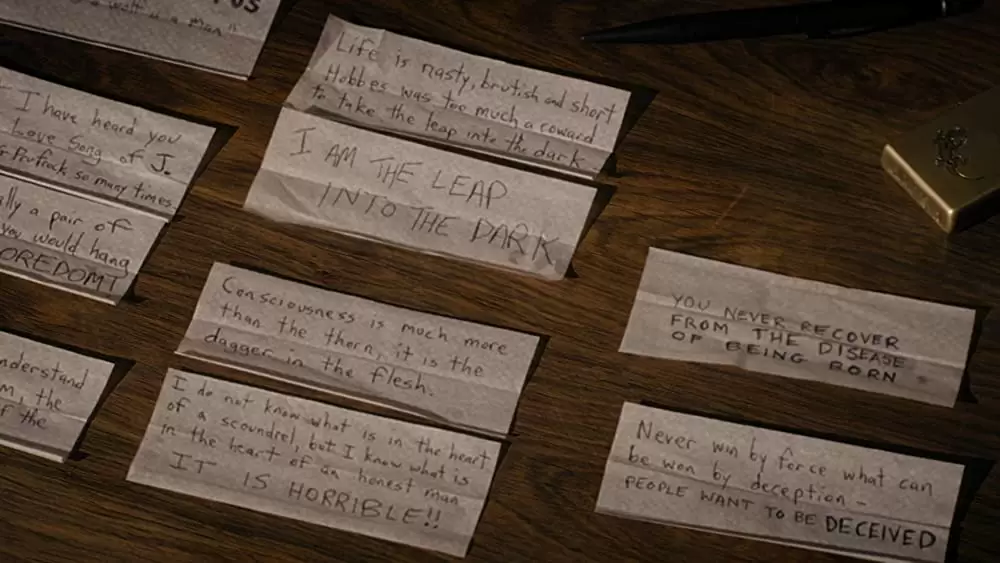 "
I have heard you
Love Song of J.
Prufrock so many times.
a pair of
you would hang
Life is nasty, brutish and short
Hobbes was too much a coward
to take the leap into the dark
I AM THE LEAP
INTO THE DARK
Consciousness is much more
than the thorn, it is the
dagger in the flesh.
I do not know what is in the heart
of a scoundrel, but I know what is
in the heart of an honest man
IT IS HORRIBLE!!
YOU NEVER RECOVER
FROM THE DISEASE
OF BEING BORN.
Never win by force what can
be won by deception –
PEOPLE WANT TO BE DECEIVED
the
the